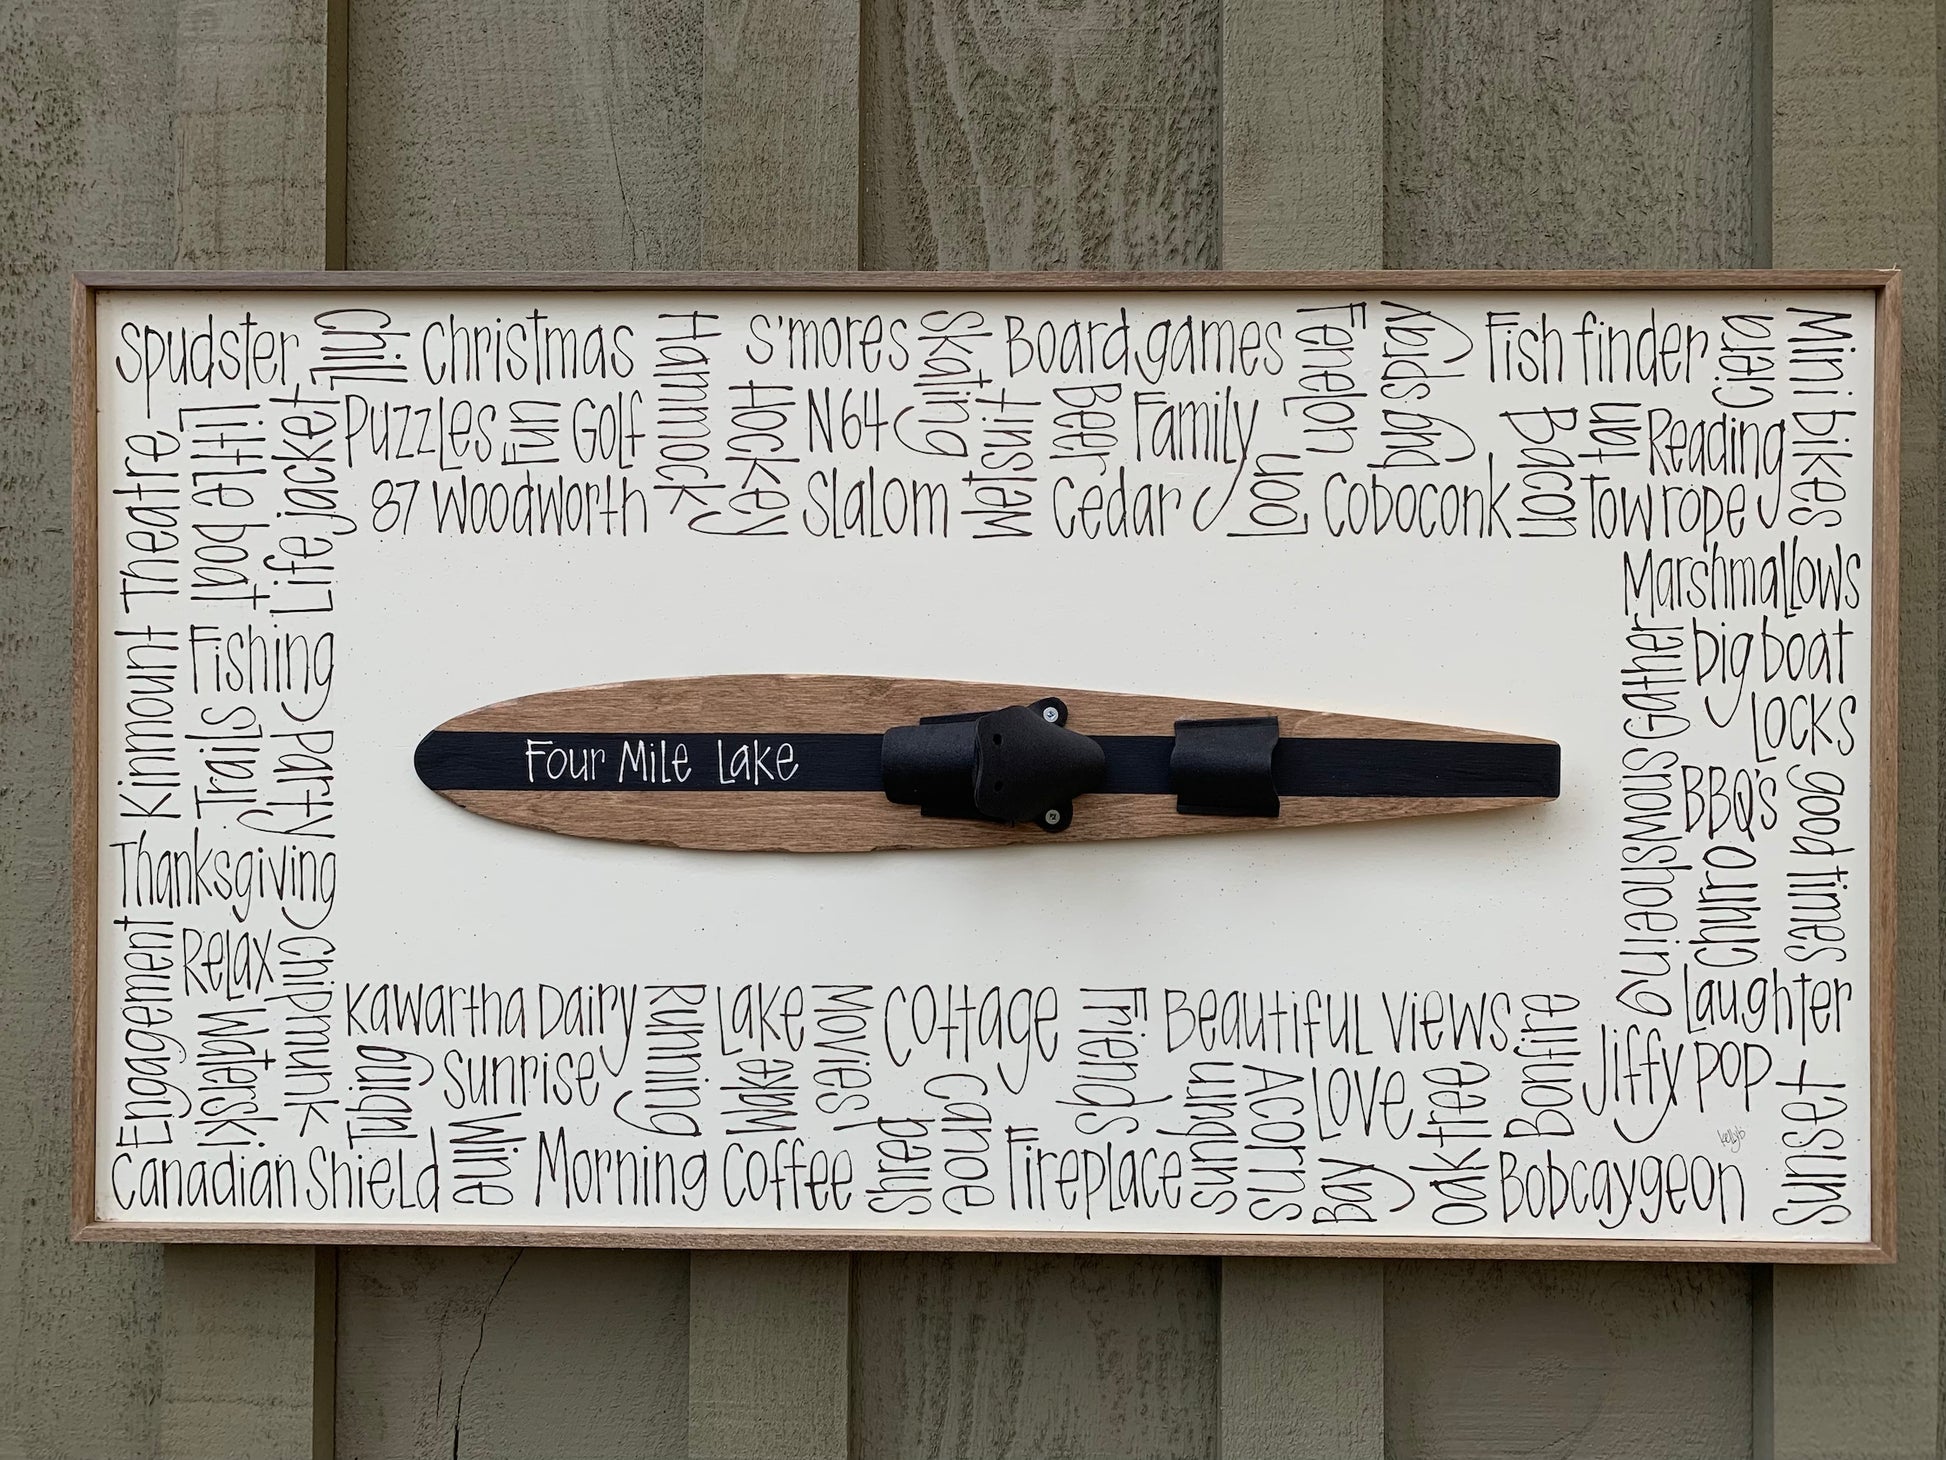 spudster
chill
Christmas
Hammock
s'mores
Skating
Board games
Fenelon
lady bugs
Fish finder
Ciera
Mini bikes
Little boat
Life jacket
Puzzles
Fun
Golf
Hockey
N64
wetsuit
Beer
Family
Loon
Bacon
tan
Reading
87 Woodworth
Slalom
Cedar
Coboconk
Tow rope
Kinmount Theatre
Marshmallows
Fishing
Gather
big boat
Trails
party
Locks
Four Mile Lake
BBQ's
good times
Thanksgiving
Churro
Engagement
Relax
chipmunk
Kawartha Dairy
Running
Lake
Movies
Cottage
Friends
Beautiful views
Bonfire
Laughter
Waterski
Tubing
Sunrise
Wake
Canoe
sunburn
Acorns
Love
oak tree
Jiffy pop
sunset
kellyb
Canadian Shield
Wine
Morning Coffee
shred
Fireplace
Bay
Bobcaygeon